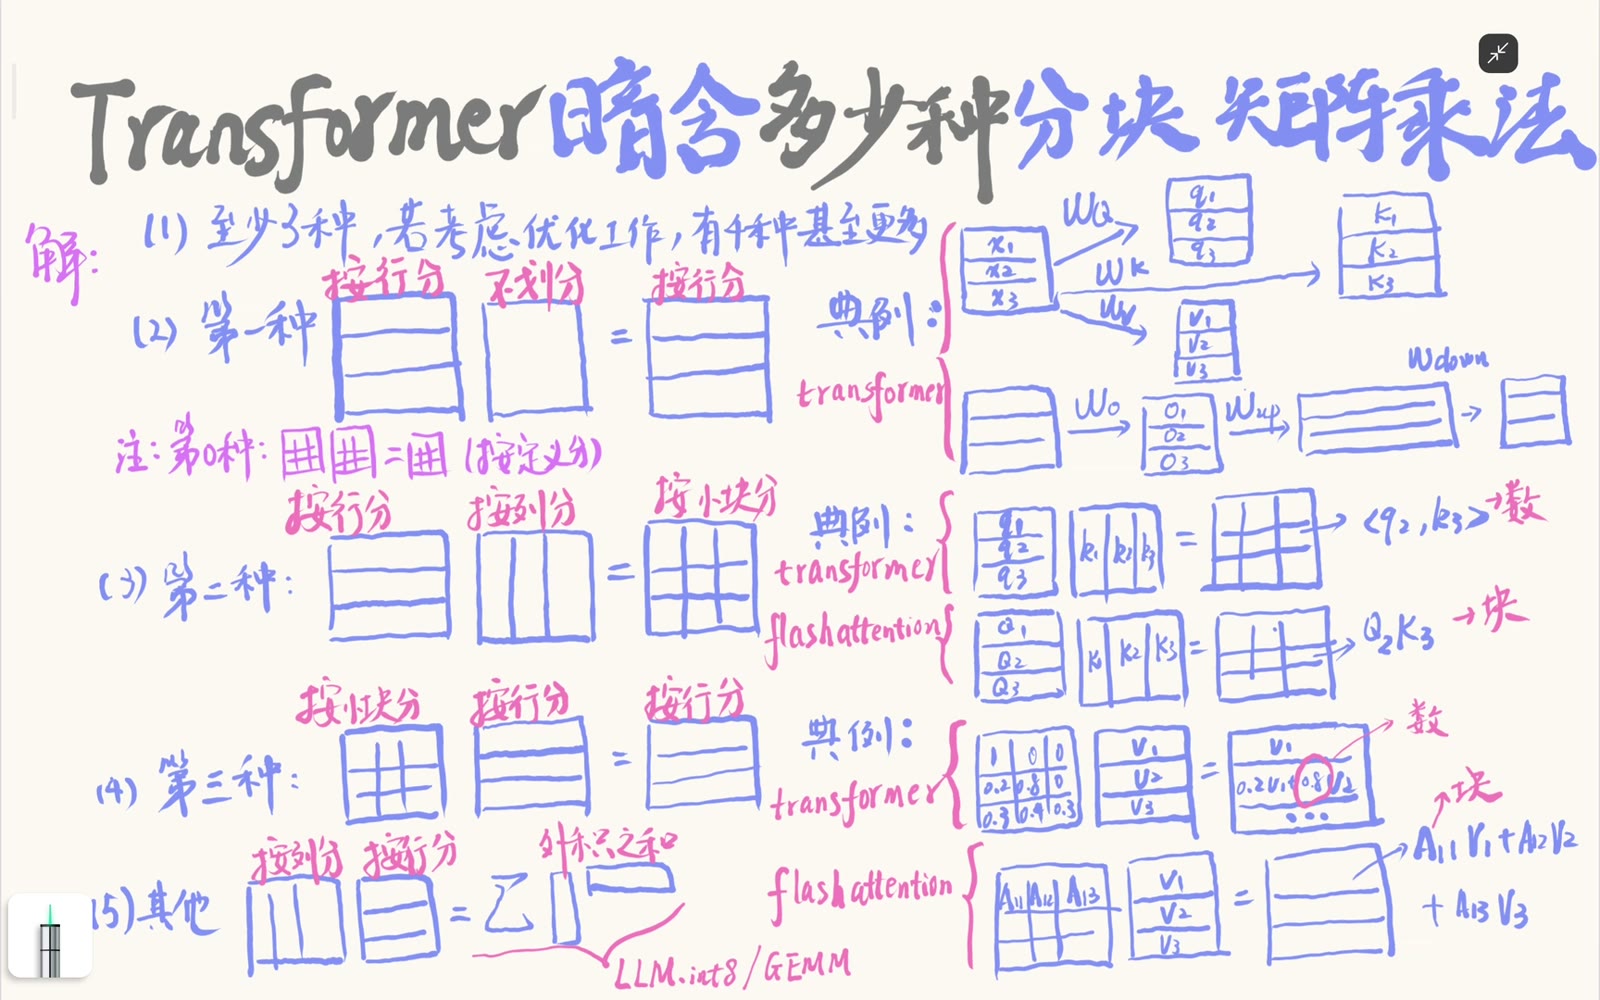 Transformer暗含多少种分块矩阵乘法
解:
(1) 至少3种,若考虑优化工作,有4种甚至更多
(2) 第一种
按行分 不划分 = 按行分
典例:
transformer
x1
x2
x3
WQ
q1
q2
q3
WK
K1
K2
K3
WV
V1
V2
V3
WO
O1
O2
O3
Wup
Wdown
注:第0种: = (按定义分)
(3) 第二种:
按行分 按列分 = 按小块分
典例:
transformer
q1
q2
q3
k1 k2 k3
=
<q2,k3> → 数
flashattention
Q1
Q2
Q3
K1 K2 K3
=
Q2K3 → 块
(4) 第三种:
按小块分 按行分 = 按行分
典例:
transformer
1 0 0
0.2 0.8 0
0.3 0.4 0.3
V1
V2
V3
=
V1
0.2V1+0.8V2
...
数
flashattention
A11 A12 A13
V1
V2
V3
=
A11V1+A12V2
+A13V3
块
(5) 其他
按列分 按行分 = Σ 外积之和
LLM.int8/GEMM